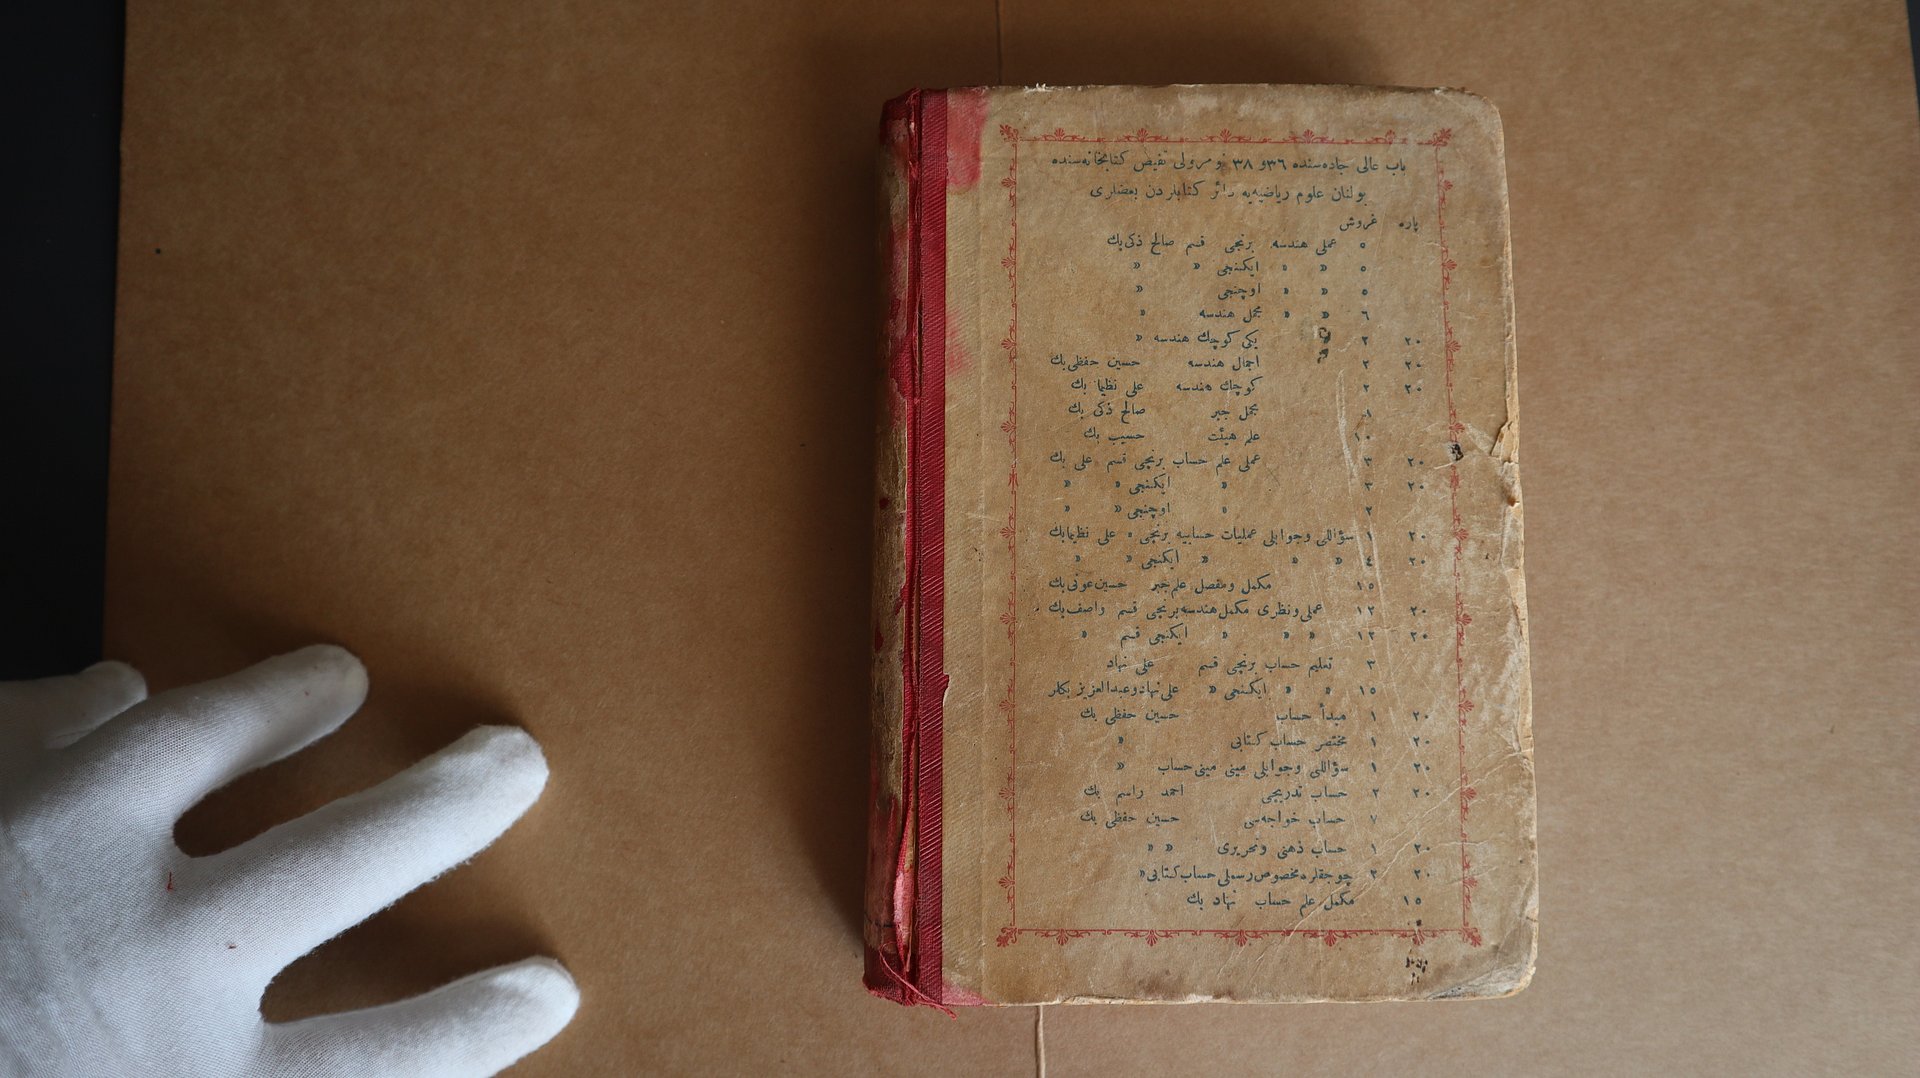 باب عالی جاده‌سنده ٣٦ و ٣٨ نومرولی تفیض کتابخانه‌سنده
بولنان علوم ریاضیه‌یه دائر کتابلردن بعضلری
پاره غروش
٥ عملی هندسه برنجی قسم صالح ذکی بك
٥ » » ایکنجی » »
٥ » » اوچنجی »
٦ » » مجمل هندسه »
٢٠ ٢ یکی کوچك هندسه »
٢٠ ٢ اجمال هندسه حسین حفظی بك
٢٠ ٢ کوچك هندسه علی نظیما بك
٨ مجمل جبر صالح ذکی بك
١٠ علم هیئت حسیب بك
٢٠ ٣ عملی علم حساب برنجی قسم علی بك
٢٠ ٣ » ایکنجی » »
٢ » اوچنجی » »
٢٠ ١ سؤاللی وجوابلی عملیات حسابیه برنجی » علی نظیمابك
٢٠ ٤ » » » ایکنجی » »
١٥ مکمل ومفصل علم جبر حسین عونی بك
٢٠ ١٢ عملی ونظری مکمل هندسه برنجی قسم واصف بك
٢٠ ١٢ » » » ایکنجی قسم »
٣ تعلیم حساب برنجی قسم علی نهاد
١٥ » » ایکنجی » علی نهاد وعبدالعزیز بکلر
٢٠ ١ مبدأ حساب حسین حفظی بك
٢٠ ١ مختصر حساب کتابی »
٢٠ ١ سؤاللی وجوابلی مینی مینی حساب »
٢٠ ٢ حساب تدریجی احمد راسم بك
٧ حساب خواجه‌سی حسین حفظی بك
٢٠ ١ حساب ذهنی وتحریری » »
٢٠ ٢ چوجقلره مخصوص رسملی حساب کتابی »
١٥ مکمل علم حساب نهاد بك